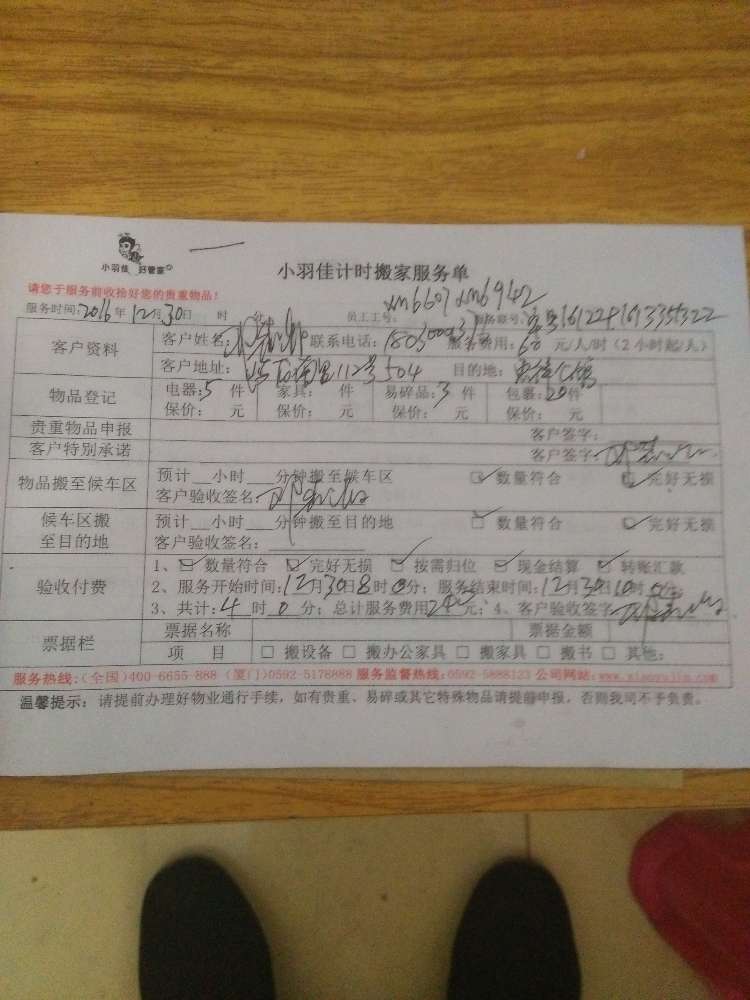 小羽佳 好管家
小羽佳计时搬家服务单
请您于服务前收拾好您的贵重物品!
服务时间:2016年12月30日 时 分 员工工号: xm6607 xm6942
客户资料 客户姓名: 联系电话: 服务费用:60元/人/时(2小时起/人)
客户地址: 112号504 目的地:
物品登记 电器:5件 家具: 件 易碎品:3件 包裹:20件
保价: 元 保价: 元 保价: 元 保价: 元
贵重物品申报 客户签字:
客户特别承诺 客户签字:
物品搬至候车区 预计__小时___分钟搬至候车区 ☑ 数量符合 ☑ 完好无损
客户验收签名:
候车区搬至目的地 预计__小时___分钟搬至目的地 ☐ 数量符合 ☑ 完好无损
客户验收签名:
验收付费 1、☑ 数量符合 ☑ 完好无损 ☑ 按需归位 ☑ 现金结算 ☑ 转账汇款
2、服务开始时间:12月30日8时0分; 服务结束时间:12月30日10时0分;
3、共计:4时0分; 总计服务费用240元; 4、客户验收签字
票据栏 票据名称 票据金额
项 目 ☐ 搬设备 ☐ 搬办公家具 ☐ 搬家具 ☐ 搬书 ☐ 其他:
服务热线:(全国)400-6655-888 (厦门)0592-5178888 服务监督热线:0592-5888123 公司网站:www.xiaoyujia.com
温馨提示: 请提前办理好物业通行手续, 如有贵重、易碎或其它特殊物品请提前申报, 否则我司不予负责。